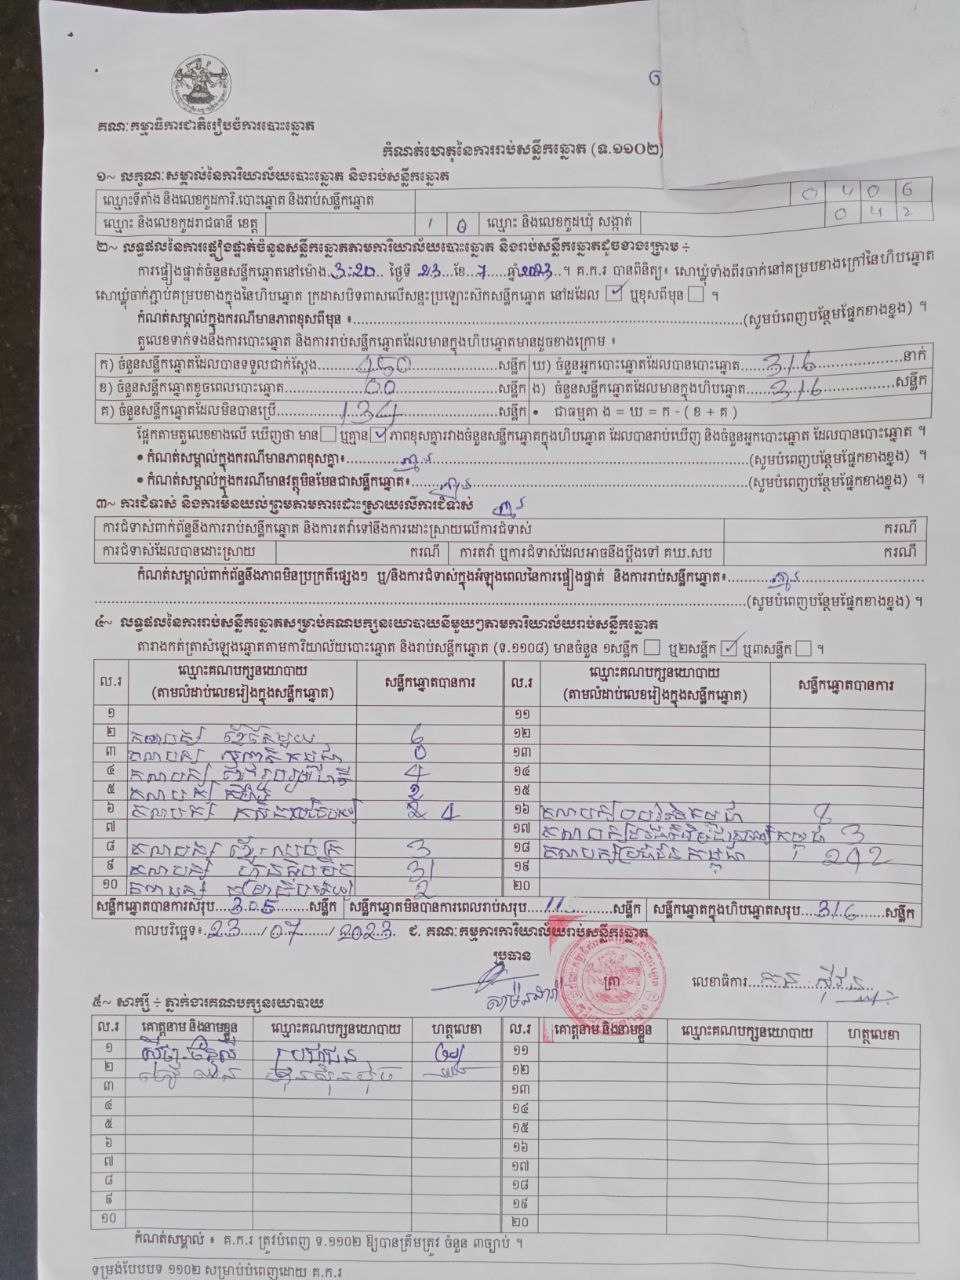 គណៈកម្មាធិការជាតិរៀបចំការបោះឆ្នោត
កំណត់ហេតុនៃការរាប់សន្លឹកឆ្នោត (ទ.១១០២)
១~ លក្ខណៈសម្គាល់នៃការិយាល័យបោះឆ្នោត និងរាប់សន្លឹកឆ្នោត
ឈ្មោះទីតាំង និងលេខកូដការិ.បោះឆ្នោត និងរាប់សន្លឹកឆ្នោត 0406
ឈ្មោះ និងលេខកូដរាជធានី ខេត្ត 10 ឈ្មោះ និងលេខកូដឃុំ សង្កាត់ 042
២~ លទ្ធផលនៃការផ្ទៀងផ្ទាត់ចំនួនសន្លឹកឆ្នោតតាមការិយាល័យបោះឆ្នោត និងរាប់សន្លឹកឆ្នោតដូចខាងក្រោម ÷
ការផ្ទៀងផ្ទាត់ចំនួនសន្លឹកឆ្នោតនៅម៉ោង 3:20 ថ្ងៃទី 23 ខែ 7 ឆ្នាំ 2023។ គ.ក.រ បានពិនិត្យ៖ សោឃ្លុំទាំងពីរចាក់នៅគម្របខាងក្រៅនៃហិបឆ្នោត
សោឃ្លុំចាក់ភ្ជាប់គម្របខាងក្នុងនៃហិបឆ្នោត ក្រដាសបិទពាសលើសន្ទះប្រឡោះស៊កសន្លឹកឆ្នោត នៅដដែល ☑ ឬខុសពីមុន ☐ ។
កំណត់សម្គាល់ក្នុងករណីមានភាពខុសពីមុន ៖ (សូមបំពេញបន្ថែមផ្នែកខាងខ្នង) ។
តួលេខទាក់ទងនឹងការបោះឆ្នោត និងការរាប់សន្លឹកឆ្នោតដែលមានក្នុងហិបឆ្នោតមានដូចខាងក្រោម ៖
ក) ចំនួនសន្លឹកឆ្នោតដែលបានទទួលជាក់ស្តែង 450 សន្លឹក ឃ) ចំនួនអ្នកបោះឆ្នោតដែលបានបោះឆ្នោត 316 នាក់
ខ) ចំនួនសន្លឹកឆ្នោតខូចពេលបោះឆ្នោត 00 សន្លឹក ង) ចំនួនសន្លឹកឆ្នោតដែលមានក្នុងហិបឆ្នោត 316 សន្លឹក
គ) ចំនួនសន្លឹកឆ្នោតដែលមិនបានប្រើ 134 សន្លឹក • ជាធម្មតា ង = ឃ = ក - ( ខ + គ )
ផ្អែកតាមតួលេខខាងលើ ឃើញថា មាន ☐ ឬគ្មាន ☑ ភាពខុសគ្នារវាងចំនួនសន្លឹកឆ្នោតក្នុងហិបឆ្នោត ដែលបានរាប់ឃើញ និងចំនួនអ្នកបោះឆ្នោត ដែលបានបោះឆ្នោត ។
• កំណត់សម្គាល់ក្នុងករណីមានភាពខុសគ្នា៖ គ្មាន (សូមបំពេញបន្ថែមផ្នែកខាងខ្នង) ។
• កំណត់សម្គាល់ក្នុងករណីមានវត្ថុមិនមែនជាសន្លឹកឆ្នោត៖ គ្មាន (សូមបំពេញបន្ថែមផ្នែកខាងខ្នង) ។
៣~ ការជំទាស់ និងការមិនយល់ព្រមតាមការដោះស្រាយលើការជំទាស់ គ្មាន
ការជំទាស់ពាក់ព័ន្ធនឹងការរាប់សន្លឹកឆ្នោត និងការតវ៉ាទៅនឹងការដោះស្រាយលើការជំទាស់ ករណី
ការជំទាស់ដែលបានដោះស្រាយ ករណី ការតវ៉ា ឬការជំទាស់ដែលអាចនឹងប្តឹងទៅ គឃ.សប ករណី
កំណត់សម្គាល់ពាក់ព័ន្ធនឹងភាពមិនប្រក្រតីផ្សេងៗ ឬ/និងការជំទាស់ក្នុងអំឡុងពេលនៃការផ្ទៀងផ្ទាត់ និងការរាប់សន្លឹកឆ្នោត៖ គ្មាន
(សូមបំពេញបន្ថែមផ្នែកខាងខ្នង) ។
៤~ លទ្ធផលនៃការរាប់សន្លឹកឆ្នោតសម្រាប់គណបក្សនយោបាយនីមួយៗតាមការិយាល័យរាប់សន្លឹកឆ្នោត
តារាងកត់ត្រាសំឡេងឆ្នោតតាមការិយាល័យបោះឆ្នោត និងរាប់សន្លឹកឆ្នោត (ទ.១១០៨) មានចំនួន ១សន្លឹក ☐ ឬ២សន្លឹក ☑ ឬ៣សន្លឹក ☐ ។
ល.រ ឈ្មោះគណបក្សនយោបាយ (តាមលំដាប់លេខរៀងក្នុងសន្លឹកឆ្នោត) សន្លឹកឆ្នោតបានការ ល.រ ឈ្មោះគណបក្សនយោបាយ (តាមលំដាប់លេខរៀងក្នុងសន្លឹកឆ្នោត) សន្លឹកឆ្នោតបានការ
១ ១១
២ គណបក្ស ខ្មែរតែមួយ 6 ១២
៣ គណបក្ស 0 ១៣
៤ គណបក្ស 4 ១៤
៥ គណបក្ស ១៥
៦ គណបក្ស 24 ១៦ គណបក្ស កម្ពុជា
៧ ១៧ គណបក្ស កម្ពុជា 3
៨ គណបក្ស ខ្មែរ 3 ១៨ គណបក្សប្រជាជន កម្ពុជា 242
៩ គណបក្ស ហ៊្វុនស៊ិនប៉ិច 31 ១៩
១០ គណបក្ស 2 ២០
សន្លឹកឆ្នោតបានការសរុប 305 សន្លឹក សន្លឹកឆ្នោតមិនបានការពេលរាប់សរុប 11 សន្លឹក សន្លឹកឆ្នោតក្នុងហិបឆ្នោតសរុប 316 សន្លឹក
កាលបរិច្ឆេទ៖ 23/07/2023 ជ. គណៈកម្មការការិយាល័យរាប់សន្លឹកឆ្នោត
ប្រធាន ត្រា លេខាធិការ
៥~ សាក្សី ÷ ភ្នាក់ងារគណបក្សនយោបាយ
ល.រ គោត្តនាម និងនាមខ្លួន ឈ្មោះគណបក្សនយោបាយ ហត្ថលេខា ល.រ គោត្តនាម និងនាមខ្លួន ឈ្មោះគណបក្សនយោបាយ ហត្ថលេខា
១ ប្រជាជន ១១
២ ហ៊្វុនស៊ិនប៉ិច ១២
៣ ១៣
៤ ១៤
៥ ១៥
៦ ១៦
៧ ១៧
៨ ១៨
៩ ១៩
១០ ២០
កំណត់សម្គាល់ ៖ គ.ក.រ ត្រូវបំពេញ ទ.១១០២ ឱ្យបានត្រឹមត្រូវ ចំនួន ៣ច្បាប់ ។
ទម្រង់បែបបទ ១១០២ សម្រាប់បំពេញដោយ គ.ក.រ